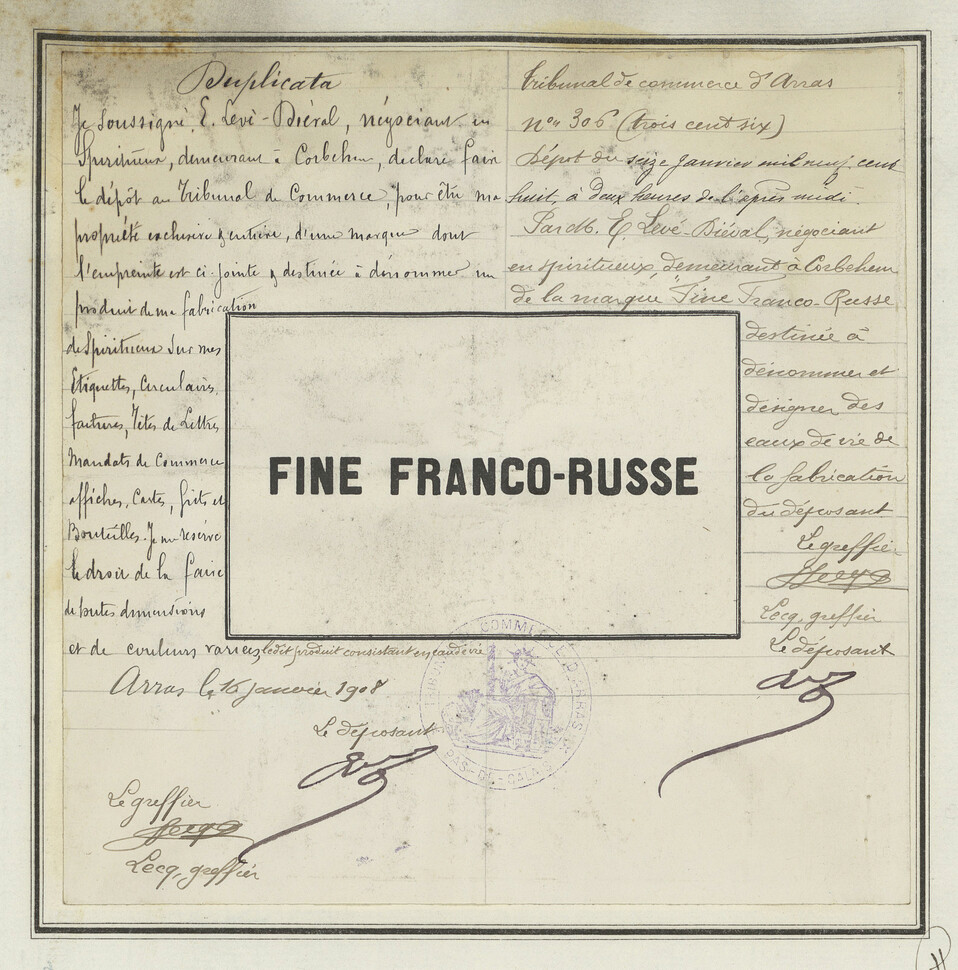 Duplicata
Je soussigné, E. Levé-Diéval, négociant en
Spiritueux, demeurant à Corbehem, déclare faire
le dépôt au Tribunal de Commerce, pour être ma
propriété exclusive & entière, d'une marque dont
l'empreinte est ci-jointe & destinée à dénommer un
produit de ma fabrication
de Spiritueux sur mes
Etiquettes, Circulaires,
factures, Têtes de Lettres
Mandats de Commerce
affiches, Cartes, fûts et
Bouteilles. Je me réserve
le droit de la faire
de toutes dimensions
et de couleurs variées, ledit produit consistant en eau de vie
Arras le 16 janvier 1908
Le déposant
Le greffier
Lecq, greffier
Tribunal de commerce d'Arras
n° 306 (trois cent six)
Dépôt du seize janvier mil neuf cent
huit, à deux heures de l'après midi.
Par M. E. Levé-Diéval, négociant
en spiritueux, demeurant à Corbehem
de la marque "Fine Franco-Russe
destinée à
dénommer et
désigner des
eaux de vie de
la fabrication
du déposant
Le greffier
Lecq, greffier
Le déposant
FINE FRANCO-RUSSE
TRIBUNAL DE COMMERCE D'ARRAS
PAS-DE-CALAIS